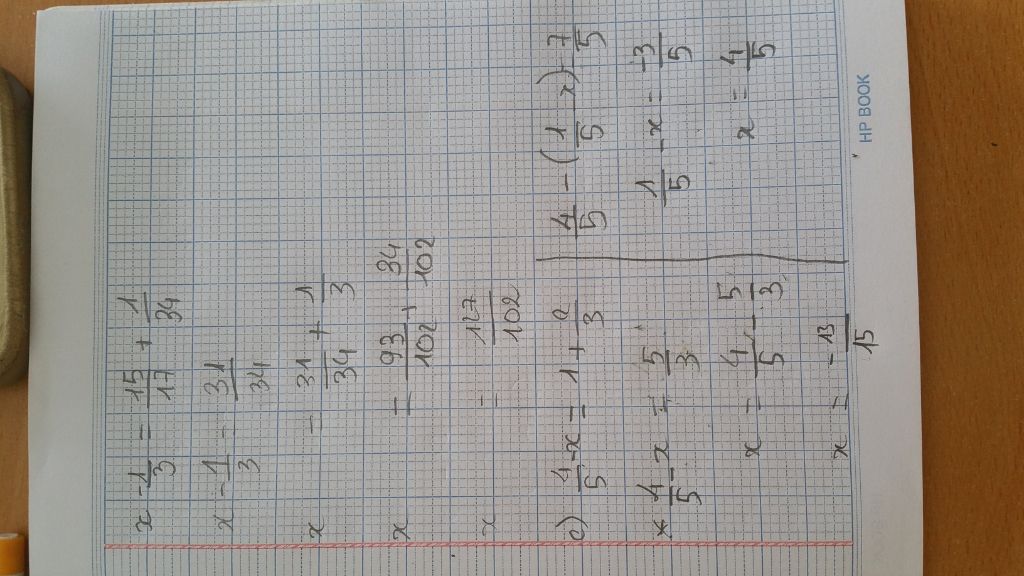 x - 1/3 = 15/17 + 1/34
x - 1/3 = 31/34
x = 31/34 + 1/3
x = 93/102 + 34/102
x = 127/102
c) 4/5 - x = 1 + 2/3
4/5 - x = 5/3
x = 4/5 - 5/3
x = -13/15
4/5 - (1/5 - x) = 7/5
1/5 - x = -3/5
x = 4/5
HP BOOK